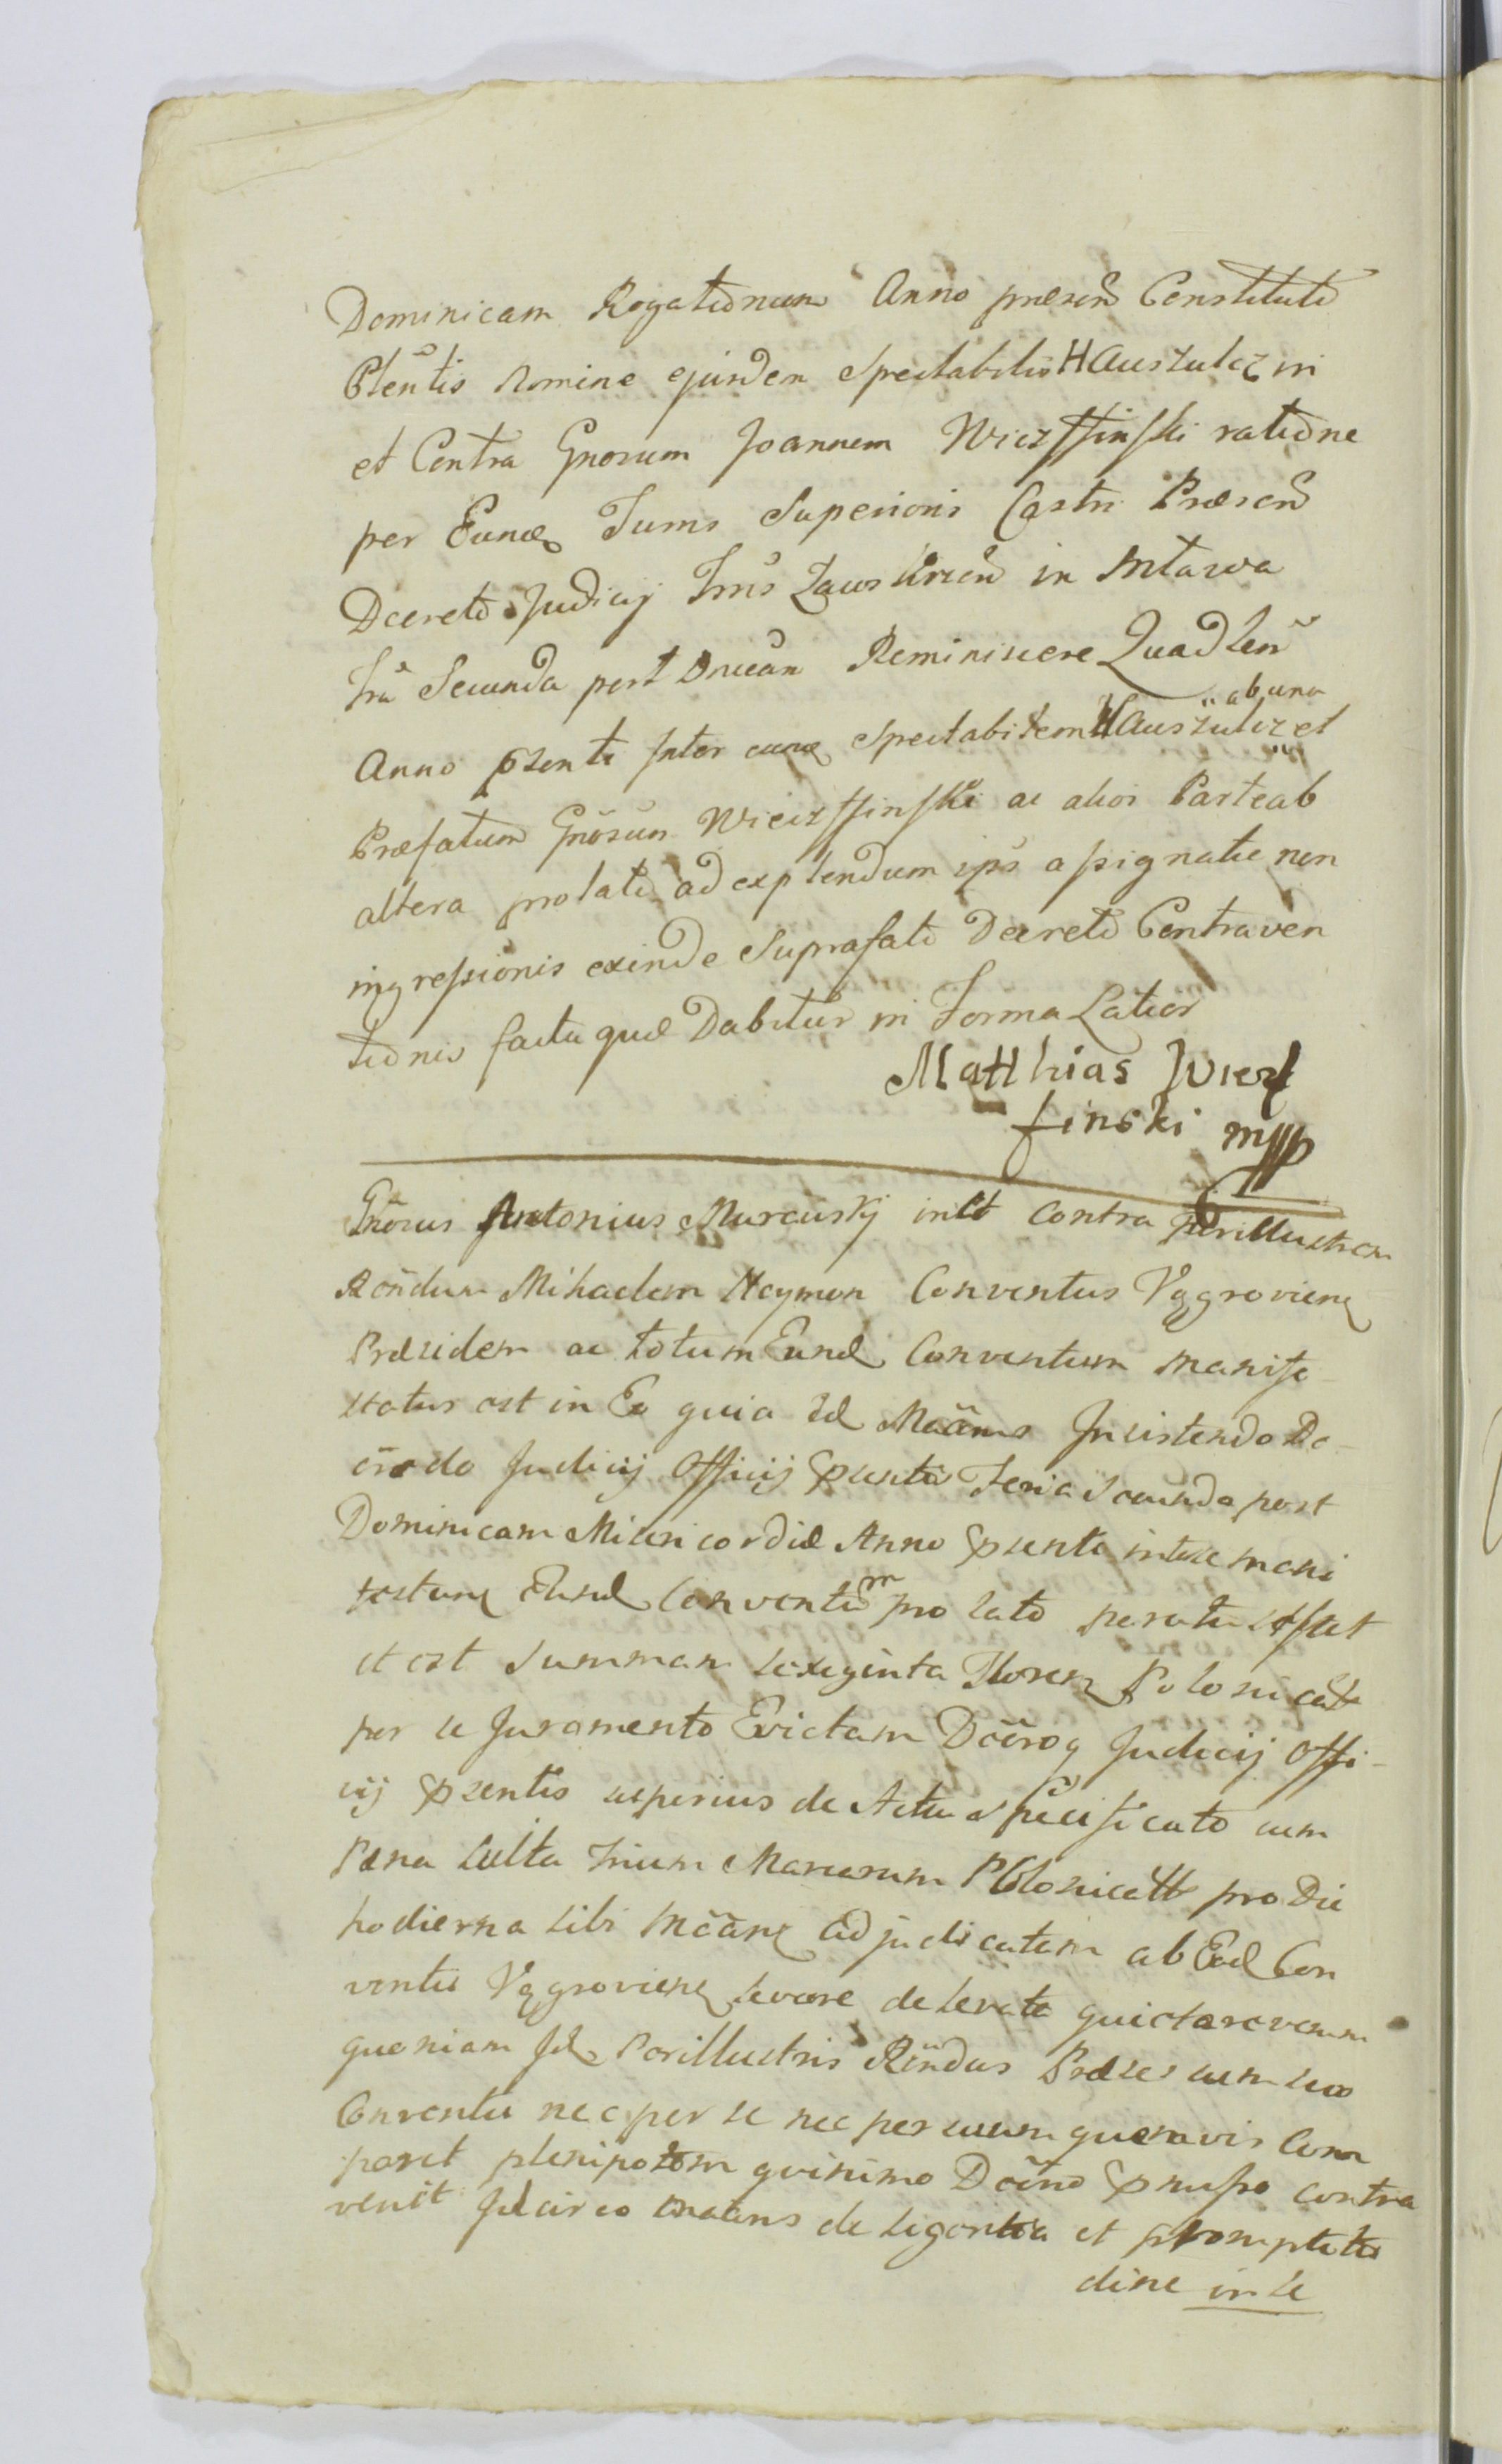 Dominicam Rogationum Anno præsen Constituti
Plentis Nomine ejusdem Spectabilis Hauszulcz in
et Contra Gnosum Joannem Wierssinski ratione
per Eund Jums Superioris Castri Præsen
Decreto Judicij Trns in Mława
Fra Secunda post Dnicam Reminiscere Quadlen
Anno pzenti Inter eund Spectabilem Hauszulcz ab una et
Præfatum Gnosum Wierssinski ac alios Parte ab
altera prolati ad explendum ips assignatæ non
ingressionis exinde Suprafati Decreti Contraven
tionis facta quæ Dabitur in Forma Latior
Matthias Wierz
finski mpp
Gnosus Antonius Murawskij in et Contra Perillustrem
Rendum Mihaelem Neymon Conventus Vggroviens
Præsidem ac totum Eund Conventum manife-
status est in Eo quia Id Maans Insistendo De-
creto Judicij Officij Pzentis Feria Secunda post
Dominicam Misericordiæ Anno pzenti inter se mani
festan Eund Conventum pro lato paratus esset
et est Summam sexaginta Floren Polonicat
per se Juramento Evictam Decreto Judicij Offi-
cij pzentis superius de Actu Specificato cum
Pæna Luita Trium Marcarum Polonicall pro Die
hodierna sibi Maan adjudicatam ab Eod Con
ventu Vggroviens levare de levata quietare verum
quoniam Id Perillustris Rendus Præses cum suo
Conventu nec per se nec per suum quemvis Com
paret plenipotem quinimo Decreto præmisso contra
venit Idcirco maans de ligentia et promptitu
dine in se